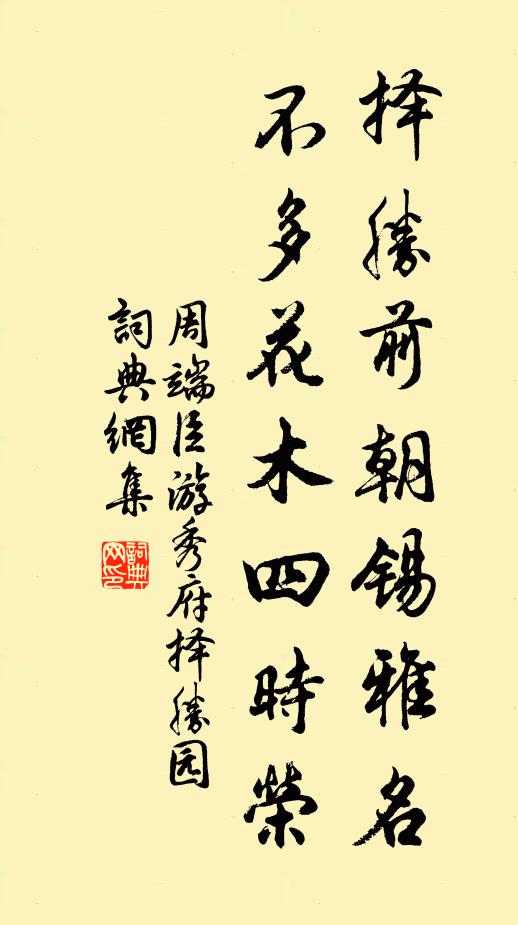 择勝前朝锡雅名
不多花木四時榮
周端臣游秀府择勝园
詞典網集
詞典网印